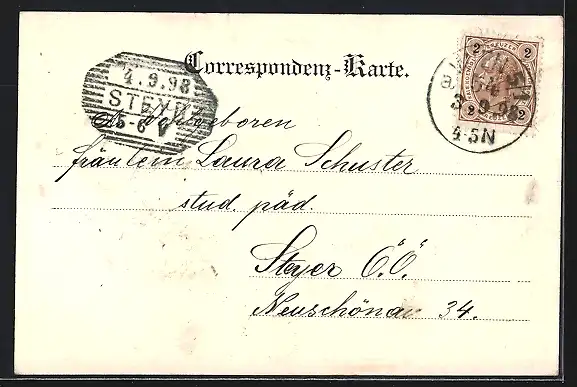 Correspondenz-Karte.
2 KREUZER 2
2 2
3 9 98
4-5N
4.9.98
STEYR
5-6 V
Fräulein Laura Schuster
stud. päd.
Steyer O.Ö.
Neuschönau 34.